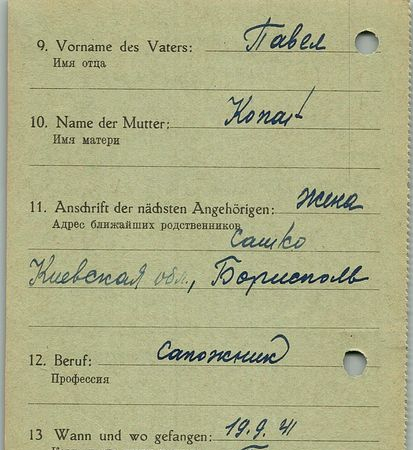 9. Vorname des Vaters: Павел
Имя отца
10. Name der Mutter:
Имя матери
11. Anschrift der nächsten Angehörigen: жена
Адрес ближайших родственников Сашко
Киевская обл., Борисполь
12. Beruf: сапожник
Профессия
13 Wann und wo gefangen: 19.9.41